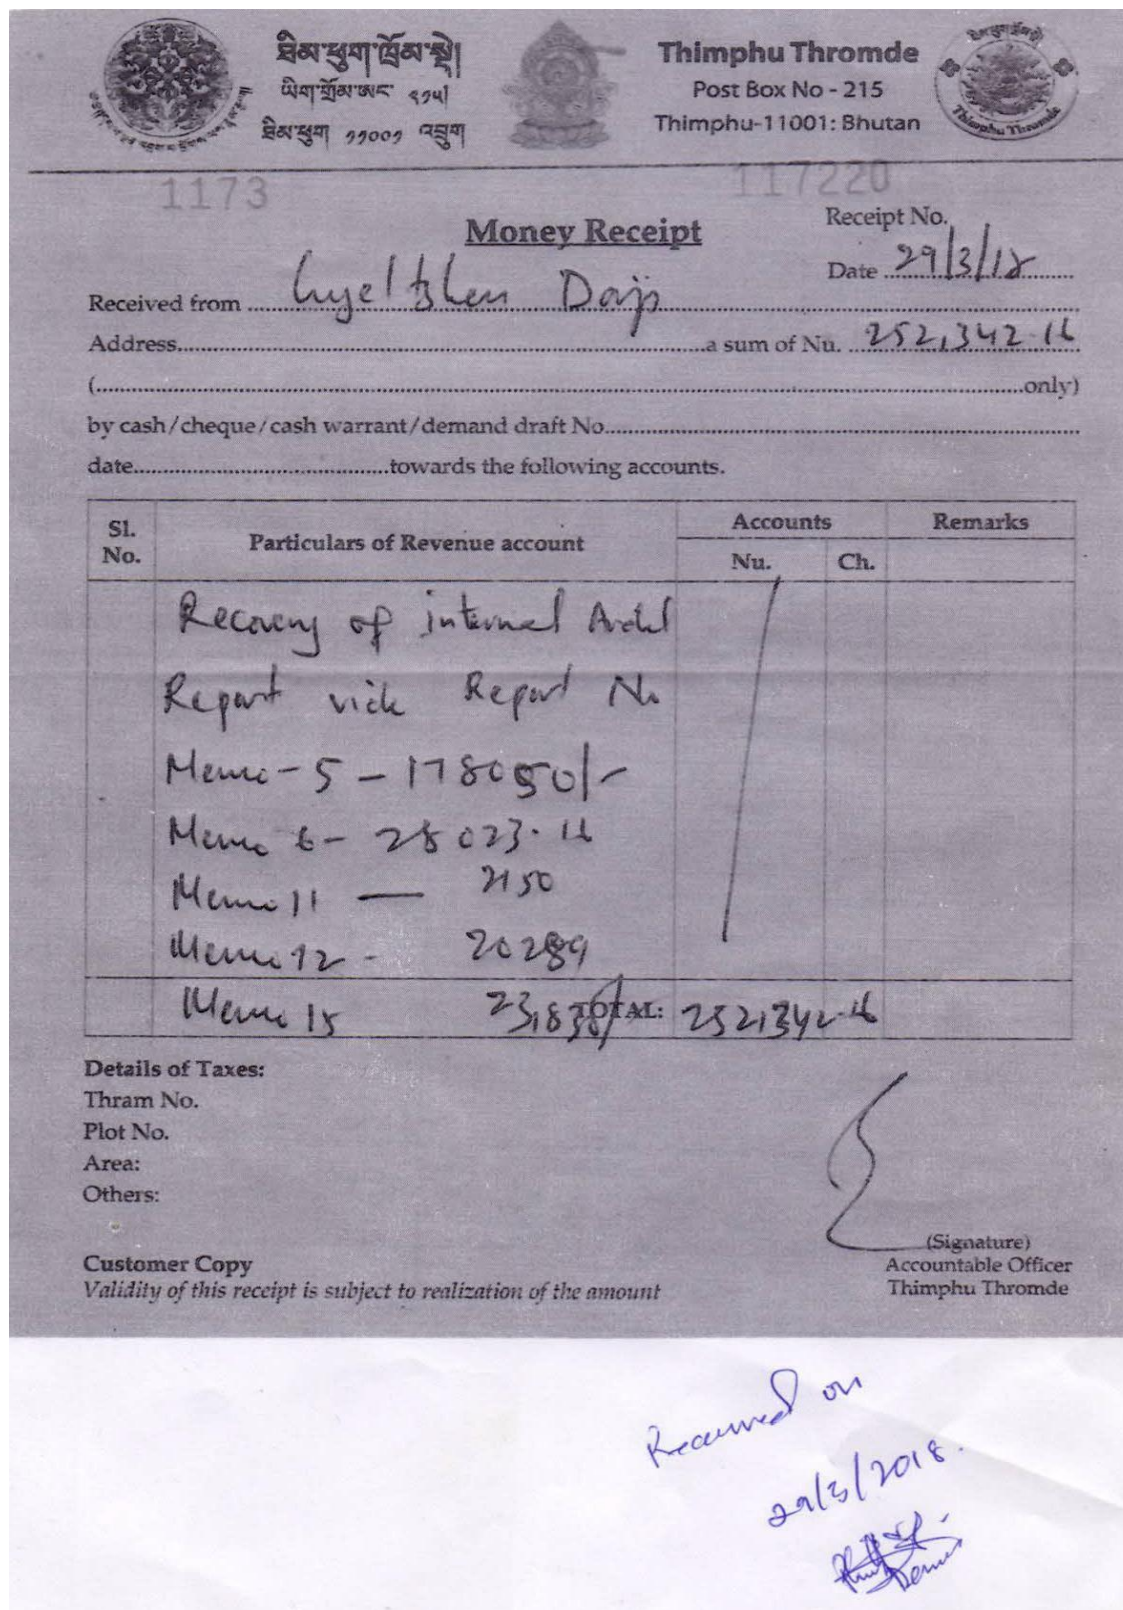 ཐིམ་ཕུག་ཁྲོམ་སྡེ།
ཡིག་སྒྲོམ་ཨང་ ༢༡༥།
ཐིམ་ཕུག ༡༡༠༠༡ འབྲུག
Thimphu Thromde
Post Box No - 215
Thimphu-11001: Bhutan
Thimphu Thromde
1173
117220
Receipt No.
Money Receipt
Date 29/3/18
Received from Gyeltshen Dorji
Address a sum of Nu. 252,342.16
( only)
by cash/cheque/cash warrant/demand draft No.
date towards the following accounts.
Sl. No. Particulars of Revenue account Accounts Remarks
Nu. Ch.
Recovery of internal Audit
Report vide Report No
Memo - 5 - 178050/-
Memo 6 - 28023.16
Memo 11 — 2150
Memo 12 - 20289
Memo 15 23,830/ TOTAL: 252,342.16
Details of Taxes:
Thram No.
Plot No.
Area:
Others:
(Signature)
Customer Copy Accountable Officer
Validity of this receipt is subject to realization of the amount Thimphu Thromde
Received on
29/3/2018.